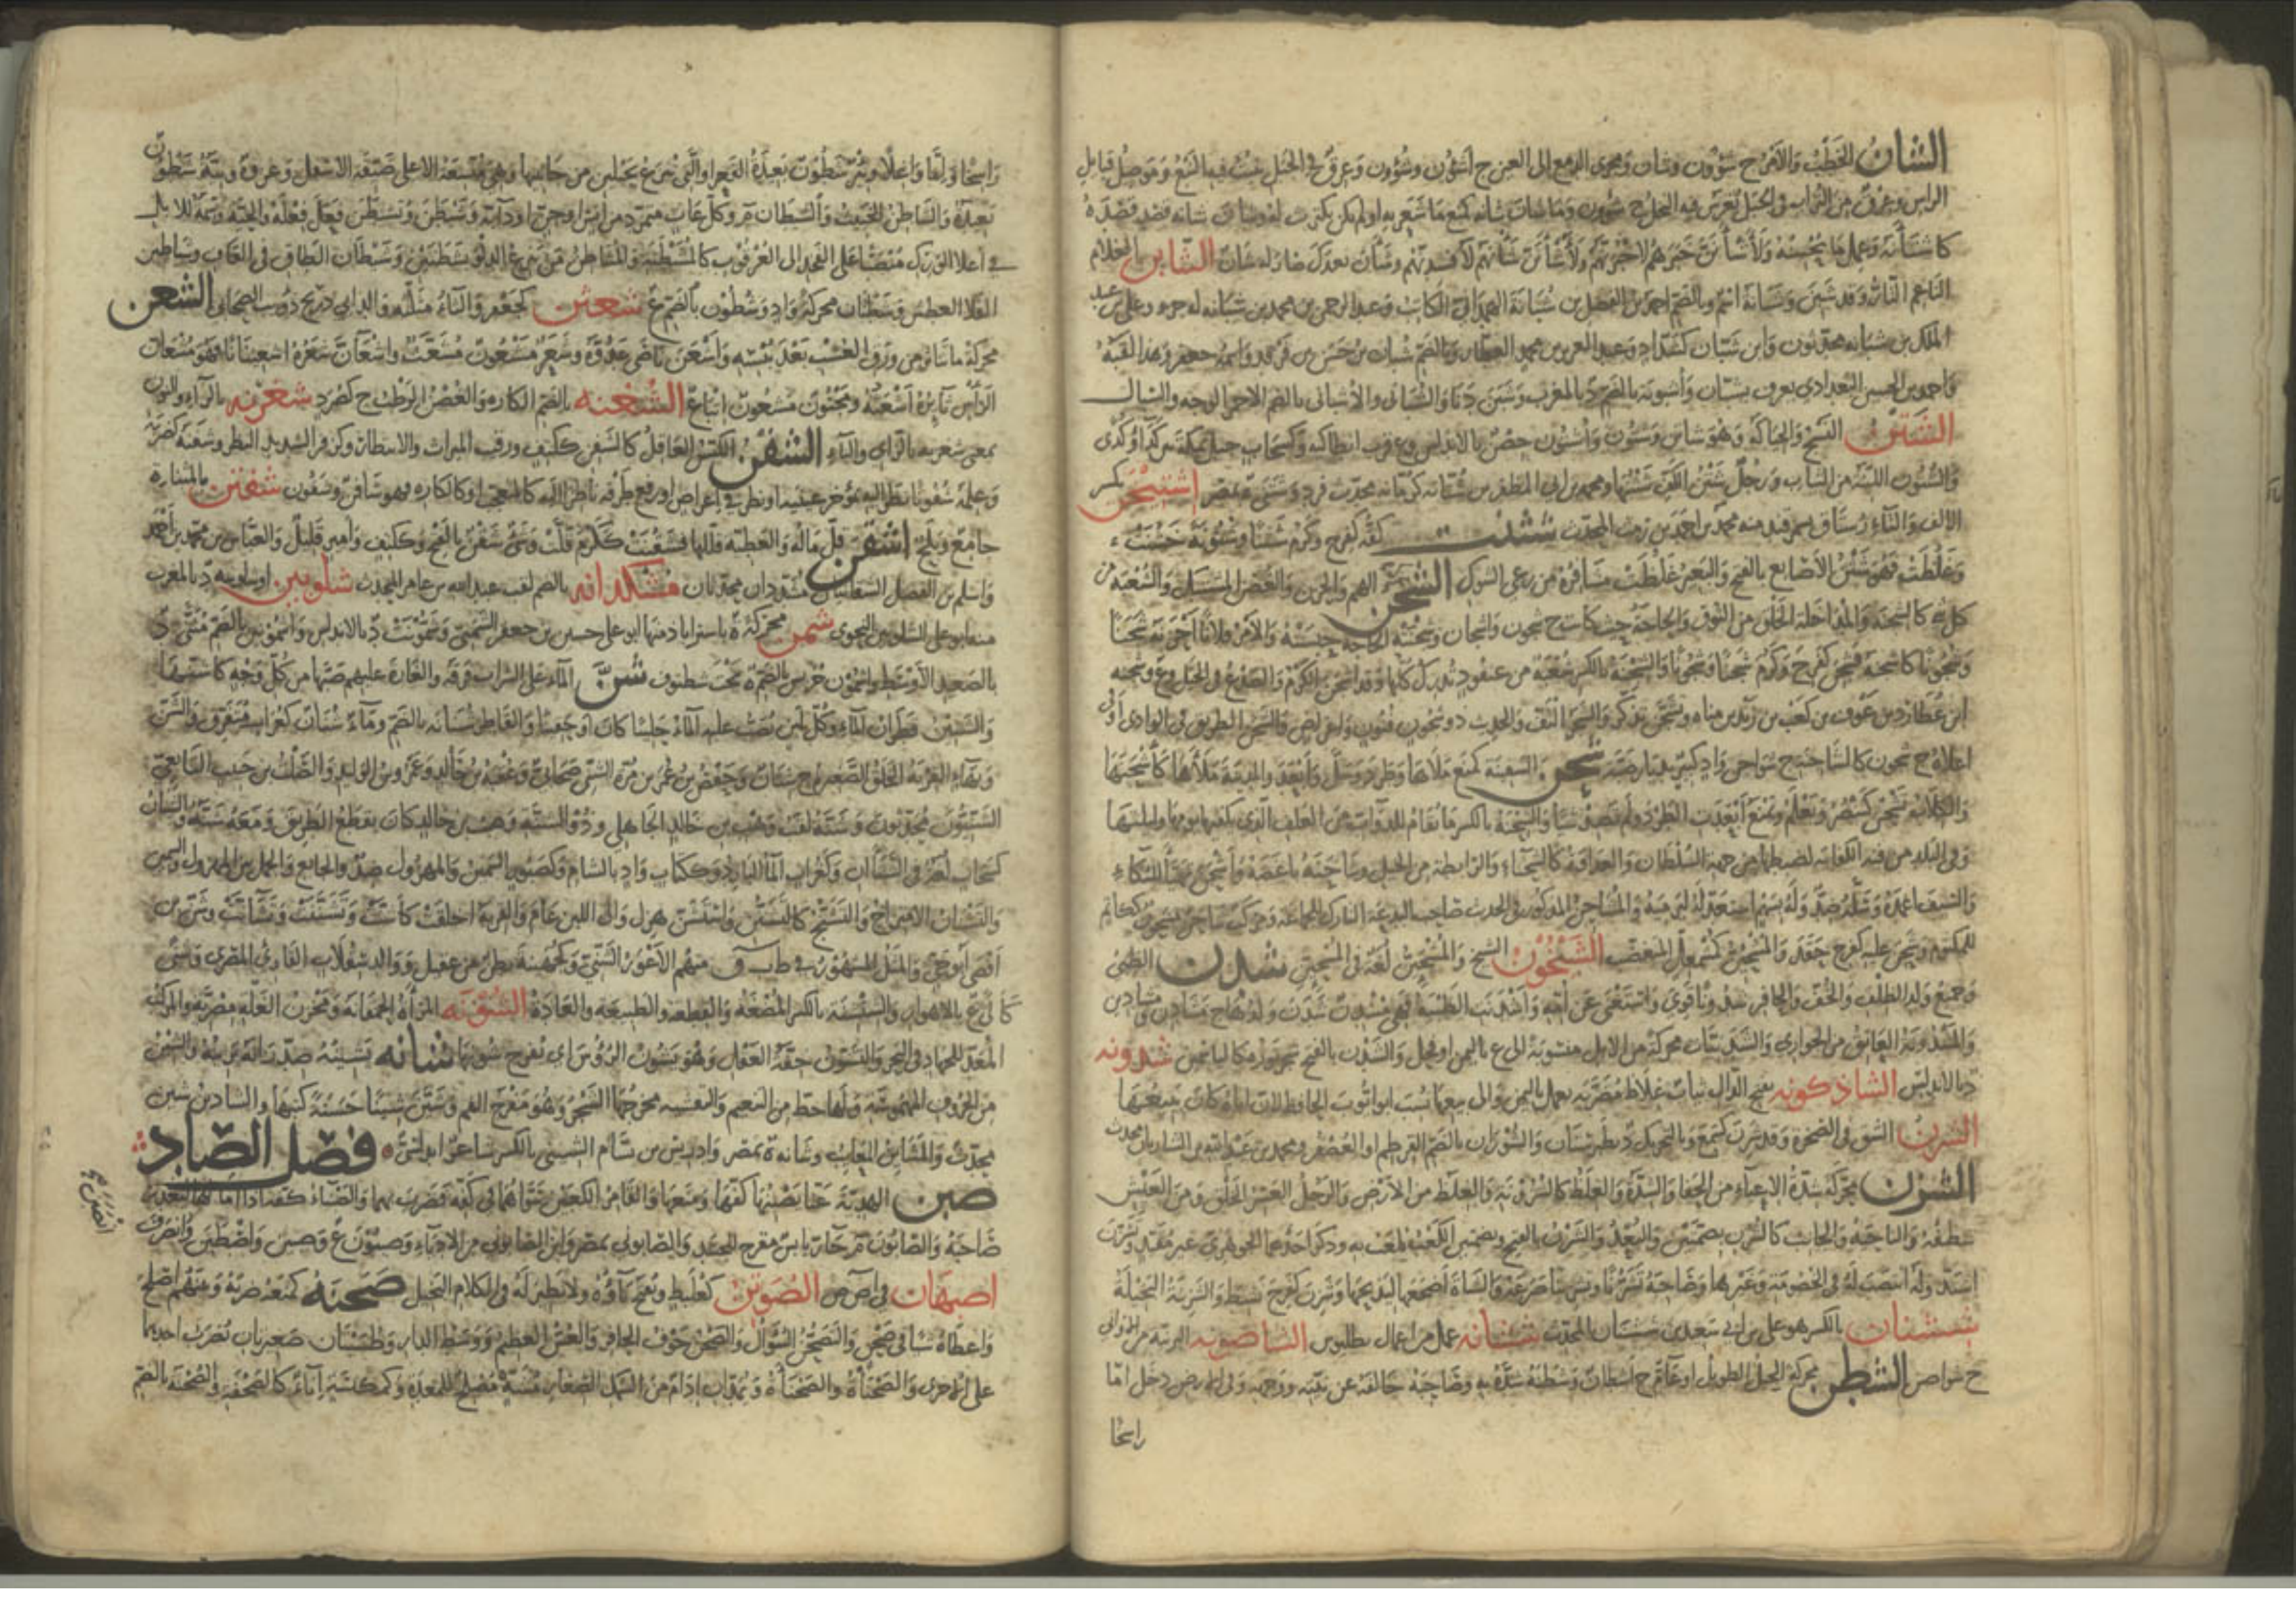 الشان الخطب والأمر ج شؤون وشان ومجرى الدمع الى العين ج أشؤن وشؤون وعرق في الجبل ينبت فيه النبع وموصل قبايل
الراس وعرق من التراب في الجبل يغرس فيه النخل ج شؤون وما شان شانه كمنع ما شعر به او لم يكترث له وشان شانه قصد قصده
كاشتأنه وعمل ما يحسنه ولأشأنن خبرهم لاخبرنهم ولأشأنن شأنهم لأفسدنهم وشأن بعدك صار له شان الشابن الغلام
الناعم التار وقد شبن وشبانة اسم وبالضم احمد بن الفضل بن شبانة الهمداني الكاتب وعبد الرحمن بن محمد بن شبانه له جزء وعلي بن عبد
الملك بن شبانه محدثون وابن شبان كشداد وعبد العزيز بن محمد العطار وبالضم شبان بن جسر بن فرقد واسمه جعفر وهذا لقبه
واحمد بن الحسين البغدادي يعرف بشبان وأشبونة بالضم د بالمغرب وشبن دنا والشباني والأشباني بالضم الاحمر الوجه والسبال
الشتن النسج والحياكة وهو شاتن وشتون وأشتون حصن بالاندلس وع قرب انطاكيه وكسحاب جبل بمكة بين كداء وكدى
والشتون اللينة من الثياب ورجل شتن الكف شثنها ومحمد بن ابي المظفر بن شتانه كرمانه محدث فرد وشتنى ة بمصر اشتيخن بكسر
الالف والتاء رستاق بسمرقند منه محمد بن احمد بن مت المحدث شثنت كفه كفرح وكرم شثنا وشثونة خشنت
وغلظت فهو شثن الأصابع بالفتح والبعير غلظت مشافره من رعي الشوك الشجن محركة الهم والحزن والغصن المشتبك والشعبة من
كل شيء كالشجنة والمتداخلة الخلق من النوق والحاجة حيث كانت ج شجون واشجان وشجنته الحاجة حبسته والأمر فلانا أحزنه شجنا
وشجونا كاشجنه فشجن كفرح وكرم شجنا وشجونا والشجنة بالكسر شعبة من عنقود تدرك كلها وقد اشجن الكرم والصدع في الجبل وع وشجنه
ابن عطارد بن عوف بن كعب بن زيد مناه وتشجن تذكر والشجر التف والحديث ذو شجون فنون واغراض والشجن الطريق في الوادي او في
اعلاه ج شجون كالشاجنة ج شواجن واد كثير بديار ضبة شحن السفينة كمنع ملأها وطرد وشل وأبعد والمدينة ملأها كأشحنها
والكلاب تشحن كتنصر وتعلم وتمنع أبعدت الطرد ولم تصد شيا والشحنة بالكسر ما تقام للدواب من العلف الذي يكفيها يومها وليلتها
وفي البلد من فيه الكفاية لضبطها من جهة السلطان والعداوة كالشحناء والرابطة من الخيل وشاحنه باغضه وأشحن تهيأ للبكاء
والسيف اغمده وسله ضد وله بسهم استعد له ليرميه والمشاحن المذكور في الحديث صاحب البدعة التارك للجماعة ومركب شاحن مشحون ككاتم
للمكتوم وشحن عليه كفرح حقد والمشحئن كمشمعل المتغضب الشيخون الشيخ والمشخئن لغة في المشحئن شدن الظبي
وجميع ولد الظلف والخف والحافر شدونا قوي واستغنى عن امه وأشدنت الظبية فهي مشدن شدن ولدها ج مشادن ومشادين
والمشدونة العاتق من الجواري والشدنيات محركة من الابل منسوبة الى ع باليمن او فحل والشدن بالفتح شجر نوره كالياسمين شذونه
د بالاندلس الشاذكونه بفتح الذال ثياب غلاظ مضربة تعمل باليمن والى بيعها نسب ابو أيوب الحافظ لان اباه كان يبيعها
الشرن الشق في الصخرة وقد شرن كسمع وبالتحريك د بطبرستان والشوران بالضم القرطم او العصفر ومحمد بن عبد الله بن الشاريان محدث
الشزن محركة شدة الاعياء من الحفا والشدة والغلظ كالشزونة والغليظ من الأرض والرجل العسر الخلق ومن العيش
شظفه والناحية والجانب كالشزن بضمتين والبعد والشزن بالفتح وبضمتين الكعب يلعب به وذكر احدهما الجوهري غير مقيد وتشزن
اشتد وله انتصب له في الخصومة وغيرها وصاحبه تشزنا وتشزينا صرعه والشاة أضجعها ليذبحها وشزن كفرح نشط والشزنة البخيلة
ششنان بالكسر هو علي بن ابي سعد بن ششنان المحدث ششانه عمل من اعمال بطليوس الشاصونه البرنية من الاواني
ج شواصن الشطن محركة الحبل الطويل او عام ج أشطان وشطنه شده به وصاحبه خالفه عن نيته ووجهه وفي الارض دخل اما
راسخا
راسخا او لقا واعلا وبئر شطون بعيدة القعر او التي تنزع بحبلين من جانبيها وهي متسعة الاعلى ضيقة الاسفل وغزوة ونية شطون
بعيدة والشاطن الخبيث والشيطان م وكل عات متمرد من انس او جن او دابة وشيطن وتشيطن فعل فعله والحية وسمة للابل
في اعلا الورك منتصبا على الفخذ الى العرقوب كالمشيطنة والمشاطن من ينزع الدلو بشطنين وشيطان الطاق في القاف وشياطين
الفلا العطش وشطنان محركة واد وشطون بالضم ع شعثن كجعفر والثاء مثلثة والد ابي رديح ذؤيب الصحابي الشعن
محركة ما تناثر من ورق العشب بعد يبسه وأشعن ناصى عدوه وشعر مشعون مشعث واشعان شعره اشعينانا فهو مشعان
الرأس ثايره أشعثه ومجنون مشعون اتباع الشغنه بالضم الكاره والغصن الرطب ج كصرد شغرنه بالراء والنون
بمعنى شغزبه بالزاي والباء الشفن الكيس العاقل كالشفن ككتف ورقيب الميراث والانتظار وكزفر الشديد النظر وشفنه كضربه
وعلمه شفونا نظر اليه بمؤخر عينيه او نظر في اعراض او رفع طرفه ناظرا اليه كالمتعجب او كالكاره فهو شافن وشفون شفتن بالمثناة
جامع ونكح أشقن قل ماله والعطية قللها فشقنت ككرم قلت وشيء شقن بالفتح وككتف وامير قليل والعباس بن محمد بن احمد
واسلم بن الفضل الشقانيان مشددان محدثان مشكدانه بالضم لقب عبد الله بن عامر المحدث شلوبين او شلوبينه د بالمغرب
منه ابو علي الشلوبين النحوي شمن محركة ة باستراباذ منها ابو علي حسين بن جعفر الشمني وشمونت د بالاندلس واشمونين بالضم مثنى د
بالصعيد الأوسط واشمون جريس بالضم ة تحت شطنوف شن الماء على الشراب فرقه والغارة عليهم صبها من كل وجه كاشنها
والشنين قطران الماء وكل لبن يصب عليه الماء حليبا كان او حقينا والقاطر شنانه بالضم وماء شنان كغراب متفرق والشن
وبهاء القربة الخلق الصغيرة ج شنان وحفص بن عمر بن مرة الشني صحابي وعقبة بن خالد وعمرو بن الوليد والصلت بن حبيب التابعي
الشنيون محدثون وشنة لقب وهب بن خالد الجاهلي وذو الشنة وهب بن خالد كان يقطع الطريق ومعه شنة والشنان
كسحاب لغة في الشنآن وكغراب الماء البارد وككتاب واد بالشام وكصبور السمين والمهزول ضد والجائع والجمل بين المهزول والسمين
والتشنان الامتزاج والتشنج كالتشنن واستشن هزل والى اللبن عام والقربة اخلقت كأشنت وتشننت وتشانت وشن بن
أفصى أبو حي والمثل المشهور في ط ب ق منهم الأعور الشني وكجهينة بطن من عقيل ووالد سقلاب القارئ المصري وشنى
كأنى ع بالاهواز والشنشنة بالكسر المضغة والقطعة والطبيعة والعادة الشونه المرأة الحمقاء ومخزن الغلة مصرية والمركب
المعد للجهاد في البحر والتشون خفة العقل وهو يشون الرؤس اي يفرج شؤونها شانه يشينه ضد زانه يزينه والشين
من الحروف المهموسة ولها حظ من النعيم والتفشية مخرجها الشجر وهو مفرج الفم وشين شينا حسنة كتبها والشاذ بن شين
محدث والمشاين المعايب وشانه ة بمصر وادريس بن بسام الشيني بالكسر شاعر اندلسي ◦ فصل الصاد
صبن الهدية عنا يصبنها كفها ومنعها والقامر الكعبين سواهما في كفه فضرب بهما والصبناء كفه اذا امالها ليغدر
صاحبه والصابون م حار يابس مفرح للجسد والصابوني بمصر وابن الصابوني من الادباء وصيبون ع وصبن واضطبن وانصرف
اصبهان في أ ص ص الصوتن كعلبط وتفتح تاؤه ولا نظير له في الكلام البخيل صحنه كمنعه ضربه وبينهم اصلح
واعطاه شيا في صحن والتصحن السؤال والصحن جوف الحافر والعس العظيم ووسط الدار وطستان صغيران تضرب احدهما
على الاخرى والصحناة والصحناءة ويمدان إدام من السمك الصغار مشه مصلح للمعدة وكمكنسة إناء كالصحفة والصحنة بالضم